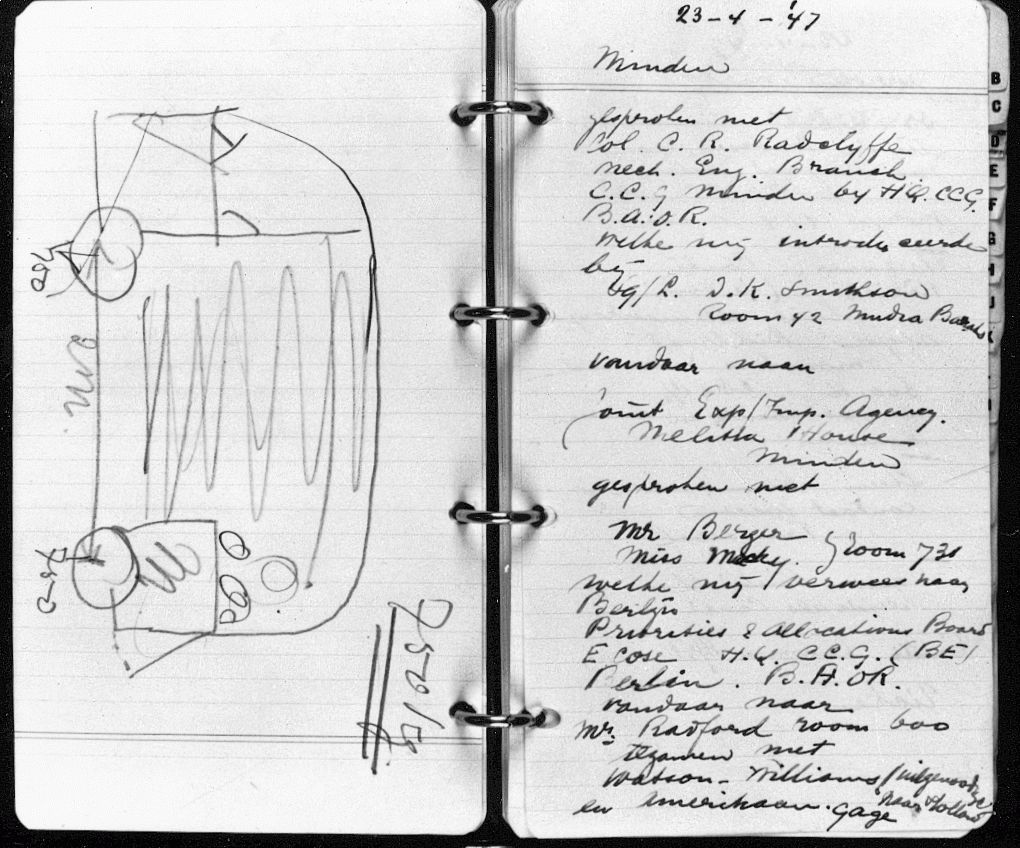 750
750
7520/kg
23-4-'47
Minden
gesproken met
Col. C. R. Radclyffe
mech. Eng. Branch.
C.C.G Minden by H.Q. CCG.
B.A.O.R.
welke mij introduceerde
bij
Room 42 Mudra Barracks
vandaar naar
Joint Exp/Imp. Agency.
Melitta House
Minden
gesproken met
Mr Berger
Miss Macky. } room 731
welke mij verwees naar
Berlijn
Priorities & Allocations Board
E cose H.Q. C.C.G. (BE)
Berlin. B.A.O.R.
vandaar naar
Mr. Radford room 600
tezamen met
Watson-Williams / uitgenoodigd
naar Holland
en Amerikaan. Gage
B
C
D
E
F
G
H
J
K